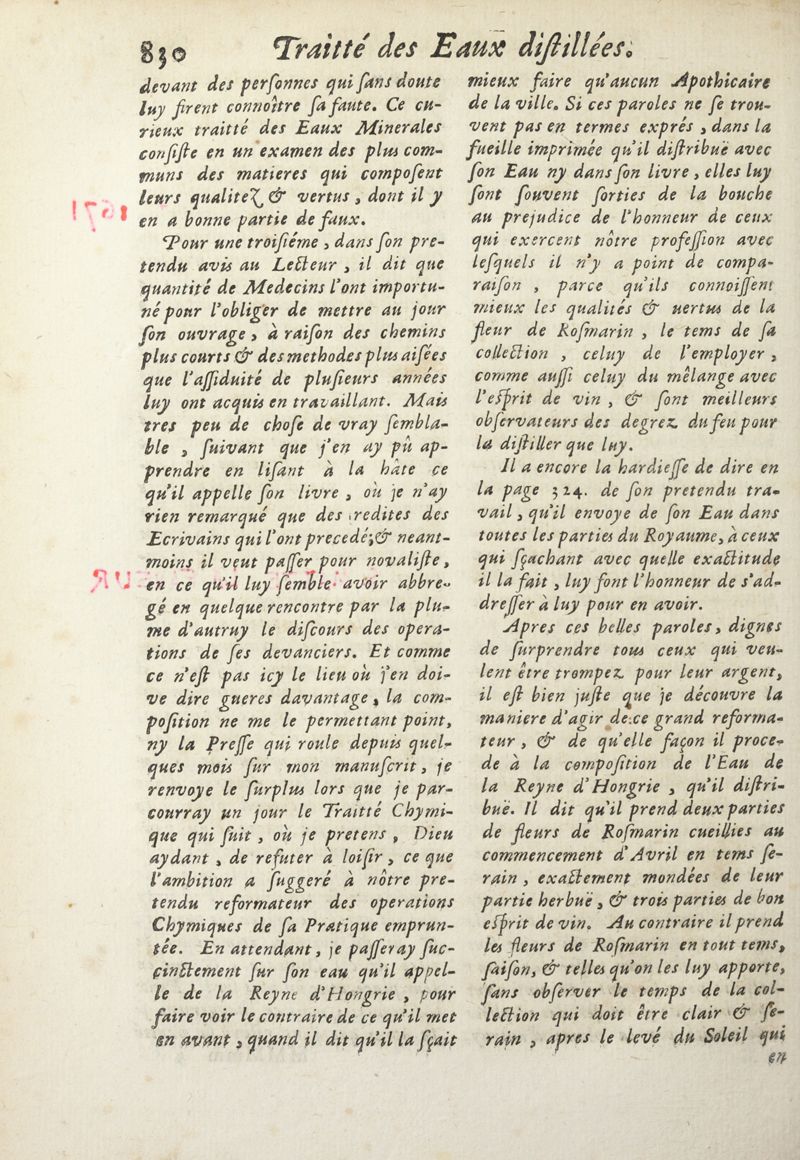 830 Traitté des Eaux distillées.
devant des personnes qui sans doute
luy firent connoître sa faute. Ce cu-
rieux traitté des Eaux Minerales
consiste en un examen des plus com-
muns des matieres qui composent
leurs qualitez & vertus, dont il y
en a bonne partie de faux.
Pour une troisiéme, dans son pre-
tendu avis au Lecteur, il dit que
quantité de Medecins l'ont importu-
né pour l'obliger de mettre au jour
son ouvrage, à raison des chemins
plus courts & des methodes plus aisées
que l'assiduité de plusieurs années
luy ont acquis en travaillant. Mais
tres peu de chose de vray sembla-
ble, suivant que j'en ay pû ap-
prendre en lisant à la hâte ce
qu'il appelle son livre, où je n'ay
rien remarqué que des redites des
Ecrivains qui l'ont precedé; & neant-
moins il veut passer pour novaliste,
en ce qu'il luy semble avoir abbre-
gé en quelque rencontre par la plu-
me d'autruy le discours des opera-
tions de ses devanciers. Et comme
ce n'est pas icy le lieu où j'en doi-
ve dire gueres davantage, la com-
position ne me le permettant point,
ny la Presse qui roule depuis quel-
ques mois sur mon manuscrit, je
renvoye le surplus lors que je par-
courray un jour le Traitté Chymi-
que qui suit, où je pretens, Dieu
aydant, de refuter à loisir, ce que
l'ambition a suggeré à nôtre pre-
tendu reformateur des operations
Chymiques de sa Pratique emprun-
tée. En attendant, je passeray suc-
cinctement sur son eau qu'il appel-
le de la Reyne d'Hongrie, pour
faire voir le contraire de ce qu'il met
en avant, quand il dit qu'il la sçait
mieux faire qu'aucun Apothicaire
de la ville. Si ces paroles ne se trou-
vent pas en termes exprés, dans la
fueille imprimée qu'il distribuë avec
son Eau ny dans son livre, elles luy
sont souvent sorties de la bouche
au prejudice de l'honneur de ceux
qui exercent nôtre profession avec
lesquels il n'y a point de compa-
raison, parce qu'ils connoissent
mieux les qualités & uertus de la
fleur de Rosmarin, le tems de sa
collection, celuy de l'employer,
comme aussi celuy du mêlange avec
l'esprit de vin, & sont meilleurs
observateurs des degrez du feu pour
la distiller que luy.
Il a encore la hardiesse de dire en
la page 324. de son pretendu tra-
vail, qu'il envoye de son Eau dans
toutes les parties du Royaume, à ceux
qui sçachant avec quelle exactitude
il la fait, luy font l'honneur de s'ad-
dresser à luy pour en avoir.
Apres ces belles paroles, dignes
de surprendre tous ceux qui veu-
lent être trompez pour leur argent,
il est bien juste que je découvre la
maniere d'agir de ce grand reforma-
teur, & de qu'elle façon il proce-
de à la composition de l'Eau de
la Reyne d'Hongrie, qu'il distri-
buë. Il dit qu'il prend deux parties
de fleurs de Rosmarin cueillies au
commencement d'Avril en tems se-
rain, exactement mondées de leur
partie herbuë, & trois parties de bon
esprit de vin. Au contraire il prend
les fleurs de Rosmarin en tout tems,
saison, & telles qu'on les luy apporte,
sans observer le temps de la col-
lection qui doit être clair & se-
rain, apres le levé du Soleil qui
en